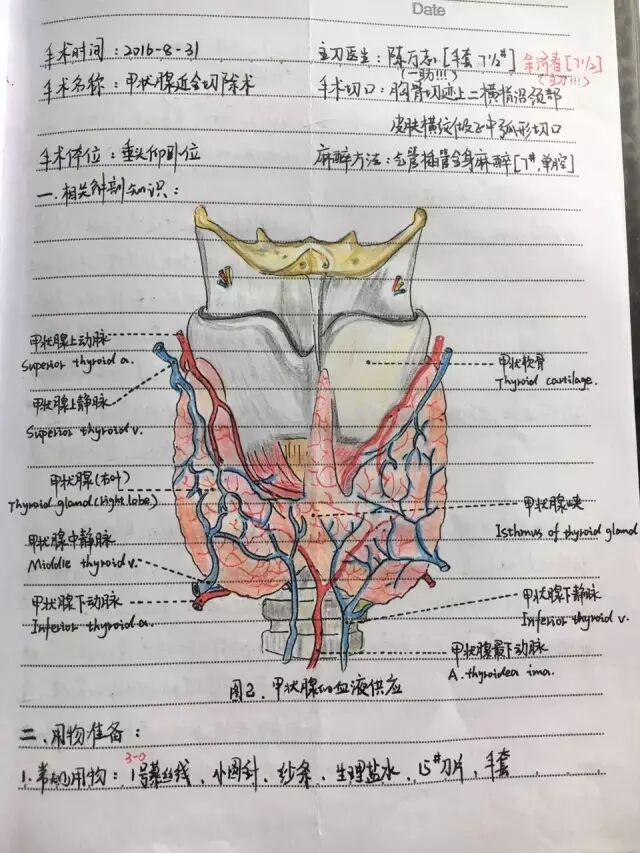 Date
手术时间：2016-8-31
主刀医生：陈万志[手套7½#] 余济春[7½]
(一助!!!) (主刀!!!)
手术名称：甲状腺近全切除术
手术切口：胸骨切迹上二横指沿颈部
皮肤横纹做正中弧形切口
手术体位：垂头仰卧位
麻醉方法：气管插管全身麻醉[7#,单腔]
一、相关解剖知识：
甲状腺上动脉
Superior thyroid a.
甲状软骨
Thyroid cartilage.
甲状腺上静脉
Superior thyroid v.
甲状腺(右叶)
Thyroid gland(right lobe)
甲状腺峡
Isthmus of thyroid gland
甲状腺中静脉
Middle thyroid v.
甲状腺下动脉
Inferior thyroid a.
甲状腺下静脉
Inferior thyroid v.
甲状腺最下动脉
A. thyroidea ima.
图2、甲状腺的血液供应
二、用物准备：
3-0
1.常规用物：1号慕丝线、小圆针、纱条、生理盐水、15#刀片、手套